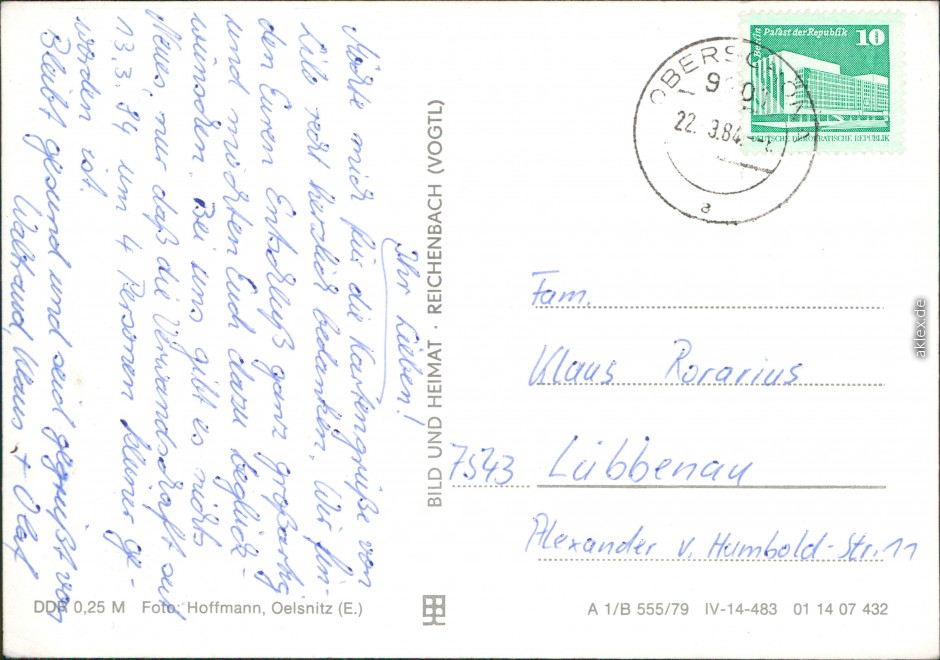 Ihr Lieben!
Möchte mich für die Kartengrüße von
Lilo recht herzlich bedanken. Wir fin-
den Euren Entschluß ganz großartig
und möchten Euch dazu beglück-
wünschen. Bei uns gibt es nichts
Neues, nur daß die Verwandschaft seit
13.3.84 um 4 Personen kleiner ge-
worden ist.
Bleibt gesund und seid gegrüßt von
Waltraud, Klaus, + Olaf
BILD UND HEIMAT · REICHENBACH (VOGTL)
Berlin Palast der Republik 10
DEUTSCHE DEMOKRATISCHE REPUBLIK
22. 3.84
a
Fam.
Klaus Rorarius
7543 Lübbenau
Alexander v. Humbold-Str. 11
DDR 0,25 M Foto: Hoffmann, Oelsnitz (E.)
A 1/B 555/79 IV-14-483 01 14 07 432
aklex.de